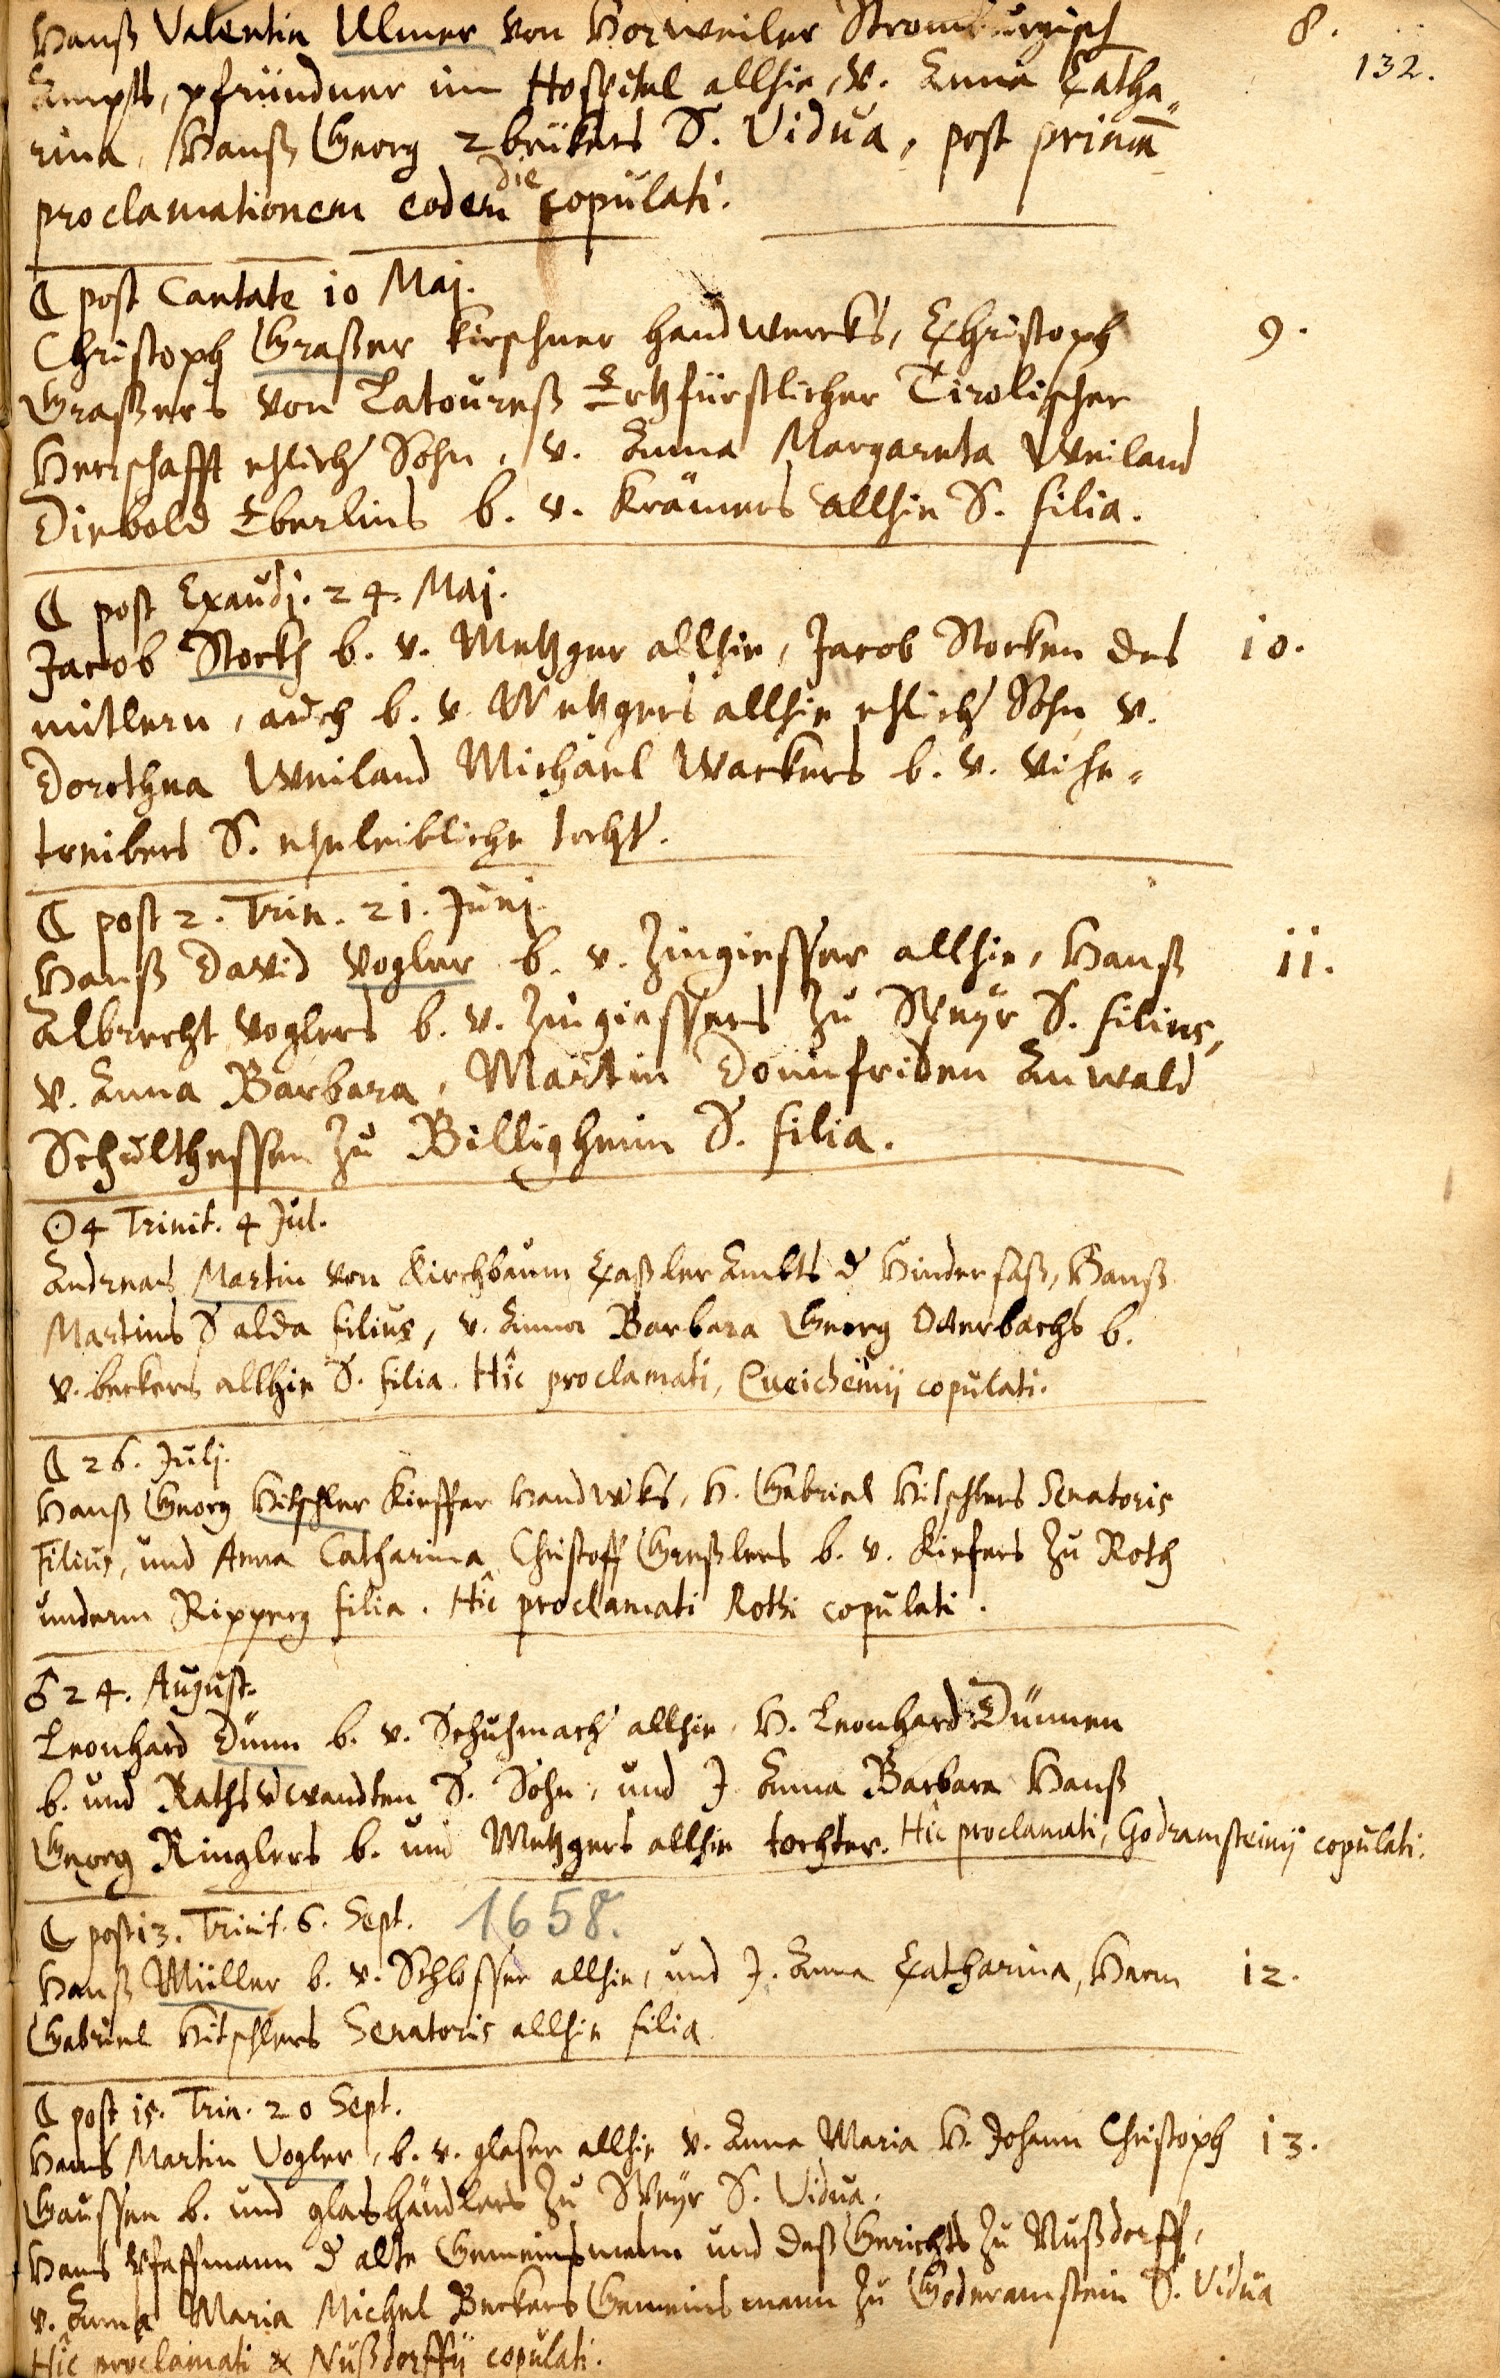 Hanß Valentin Ulmer von Horweiler Stromburgisch 8.
Ampts, pfründner im Hospital allhie, v. Anna Catha- 132.
rina, Hanß Georg 2brükers S. Vidua, post primā
proclamationem eodem die copulati.
☾ post Cantate 10 Maj.
Christoph Graßer kirschner handwercks, Christoph 9.
Graßers von Latoureß Ertzfürstlicher Tirolischer
Herrschafft ehlicher Sohn, v. Anna Margareta Weiland
Diebold Eberlins b. v. Krämers allhie S. filia.
☾ post Exaudj. 24. Maj.
Jacob Storck b. v. Metzger allhie, Jacob Storken des 10.
mitlern, auch b. v. Metzgers allhie ehlicher Sohn v.
Dorothea Weiland Michael Wackers b. v. Vihe-
treibers S. eheleibliche tochter.
☾ post 2. Trin. 21. Junj.
Hanß David Vogler b. v. Zingiesser allhie, Hanß 11.
Albrecht Voglers b. v. Zingiessers zu Speyr S. filius,
v. Anna Barbara, Martin Donnfriden Anwald
Schultheßen zu Billigheim S. filia.
☉ 4 Trinit. 4 Jul.
Andreas Martin von Kirchbaum Caßler Ambts d Hindersaß, Hanß
Martins S alda filius, v. Anna Barbara Georg Otterbachs b.
v. beckers allhie S. filia. Hîc proclamati, Queichemij copulati.
☾ 26. Julj.
Hanß Georg Hitschler Kieffer Handwks, H. Gabriel Hitschlers Senatoris
Filius, und Anna Catharina Christoff Greßlers b. v. Kiefers zu Roth
underm Ripperg filia. Hîc proclamati Rothi copulati.
♂ 24. August.
Leonhard Dünn b. v. Schuhmacher allhie, H. Leonhard Dünnen
b. und Rathsvwandten S. Sohn, und J. Anna Barbara Hanß
Georg Ringlers b. und Metzgers allhie tochter. Hîc proclamati, Godramsteinij copulati.
☾ post 13. Trinit. 6. Sept. 1658.
Hanß Müller b. v. Schlosser allhie, und J. Anna Catharina, Herrn 12.
Gabriel Hitschlers Senatoris allhie filia.
☾ post 15. Trin. 20 Sept.
Hans Martin Vogler, b. v. glaser allhie v. Anna Maria H. Johann Christoph 13.
Gaussen b. und glashändlers zu Speyr S. Vidua.
Hans Pfaffmann d alte Gemeinsmann und deß Gerichts zu Nußdorff,
v. Anna Maria Michel Beckers Gemeinsmann zu Goderamstein S. Vidua
Hîc proclamati & Nußdorffij copulati.